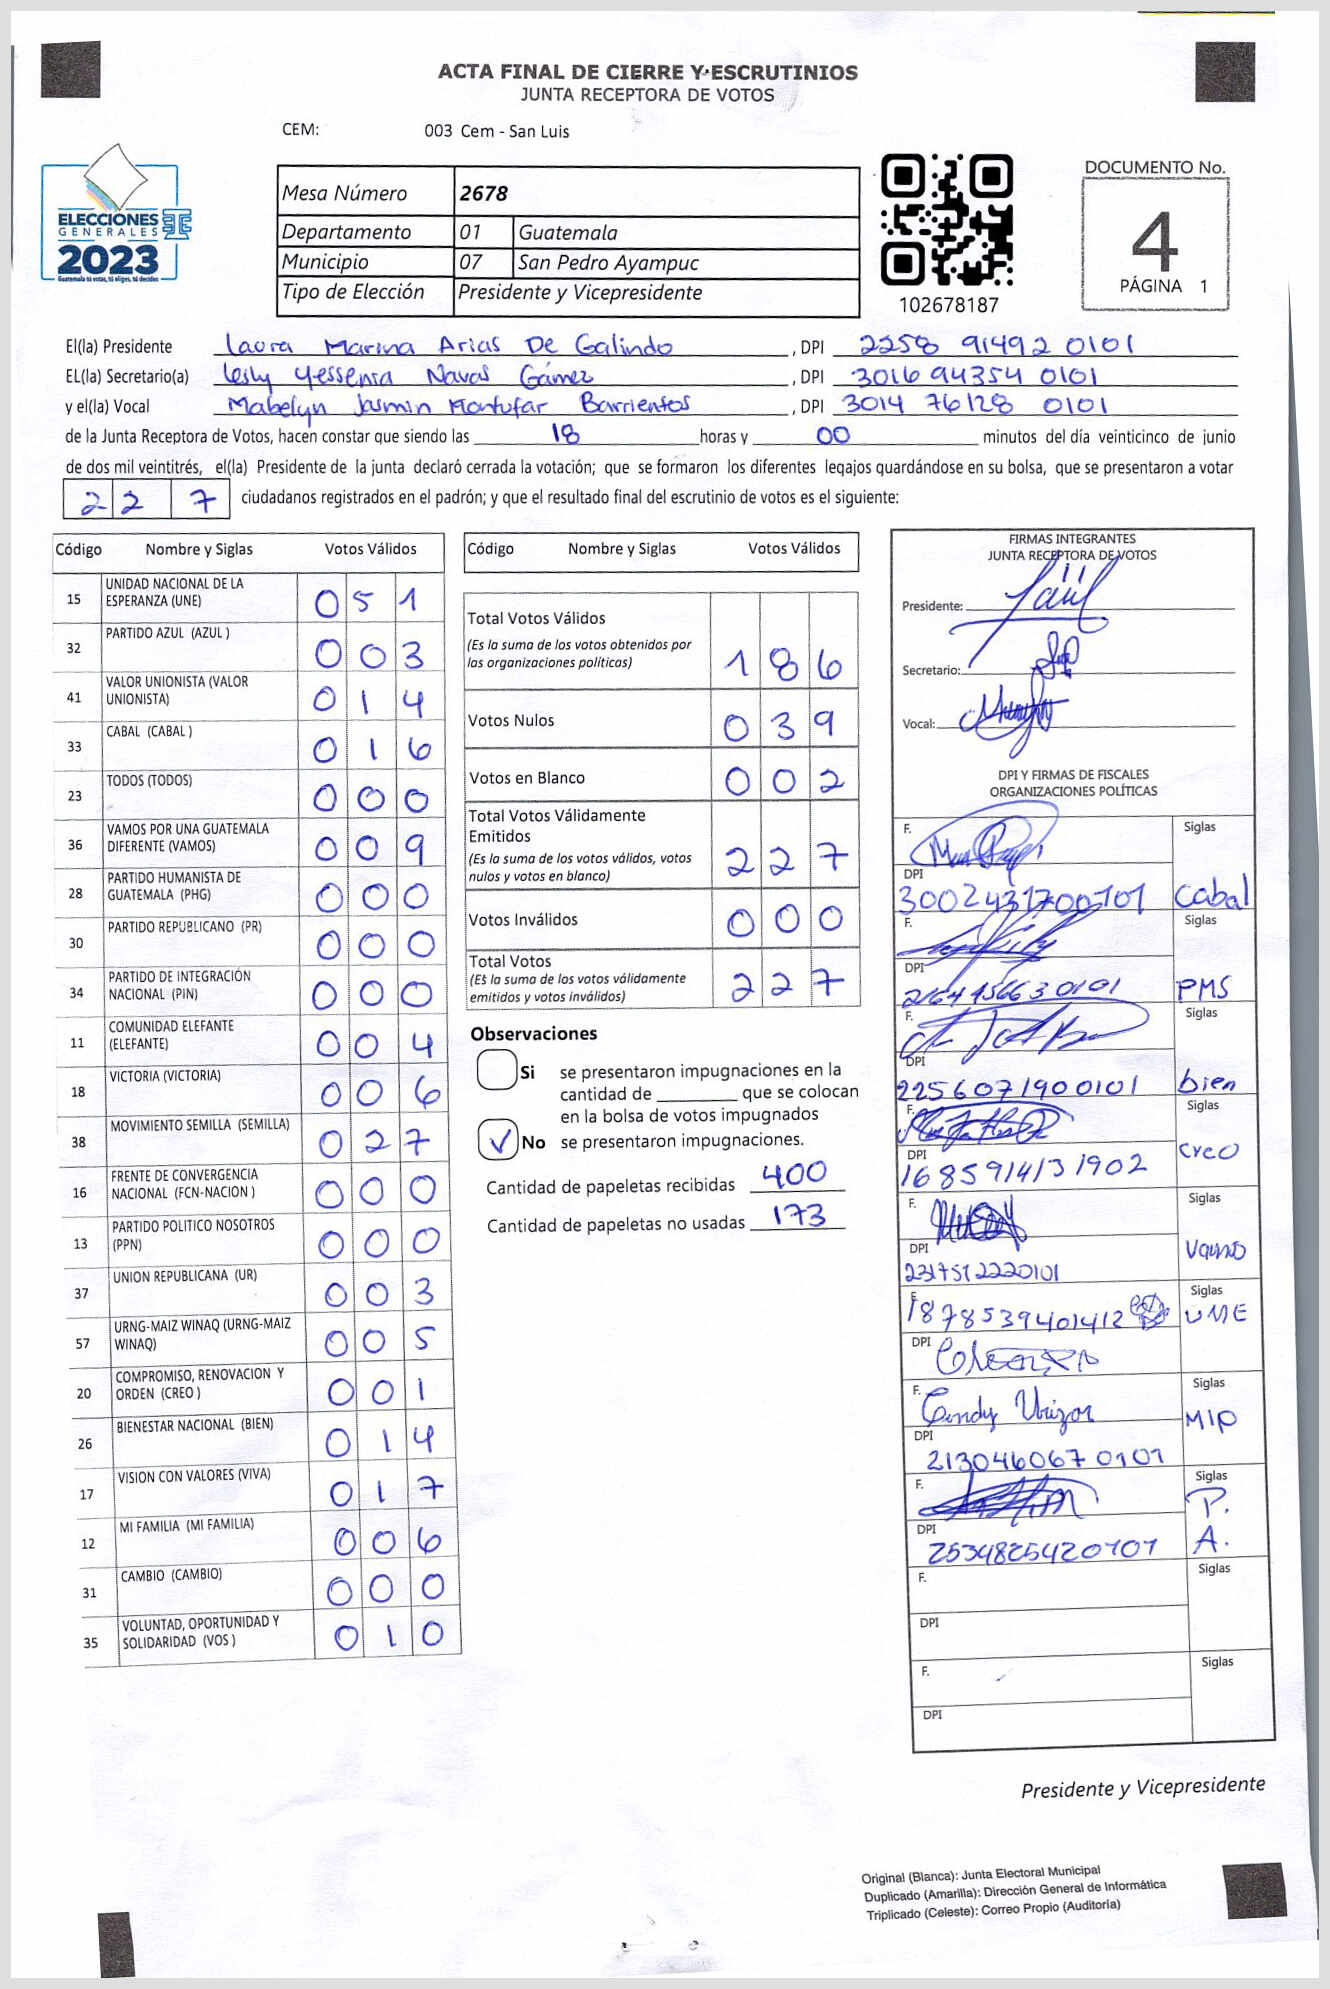 ACTA FINAL DE CIERRE Y ESCRUTINIOS
JUNTA RECEPTORA DE VOTOS
CEM: 003 Cem - San Luis
ELECCIONES
GENERALES
2023
Guatemala tú votas, tú eliges, tú decides
Mesa Número 2678
Departamento 01 Guatemala
Municipio 07 San Pedro Ayampuc
Tipo de Elección Presidente y Vicepresidente
102678187
DOCUMENTO No.
4
PÁGINA 1
El(la) Presidente Laura Marina Arias De Galindo, DPI 2258 91492 0101
EL(la) Secretario(a) Lesly Yessenia Navas Gámez, DPI 3016 94354 0101
y el(la) Vocal Mabelyn Jasmin Montufar Barrientos, DPI 3014 76128 0101
de la Junta Receptora de Votos, hacen constar que siendo las 18 horas y 00 minutos del día veinticinco de junio
de dos mil veintitrés, el(la) Presidente de la junta declaró cerrada la votación; que se formaron los diferentes legajos guardándose en su bolsa, que se presentaron a votar
2 2 7 ciudadanos registrados en el padrón; y que el resultado final del escrutinio de votos es el siguiente:
Código Nombre y Siglas Votos Válidos
15 UNIDAD NACIONAL DE LA
ESPERANZA (UNE) 0 5 1
32 PARTIDO AZUL (AZUL ) 0 0 3
41 VALOR UNIONISTA (VALOR
UNIONISTA) 0 1 4
33 CABAL (CABAL ) 0 1 6
23 TODOS (TODOS) 0 0 0
36 VAMOS POR UNA GUATEMALA
DIFERENTE (VAMOS) 0 0 9
28 PARTIDO HUMANISTA DE
GUATEMALA (PHG) 0 0 0
30 PARTIDO REPUBLICANO (PR) 0 0 0
34 PARTIDO DE INTEGRACIÓN
NACIONAL (PIN) 0 0 0
11 COMUNIDAD ELEFANTE
(ELEFANTE) 0 0 4
18 VICTORIA (VICTORIA) 0 0 6
38 MOVIMIENTO SEMILLA (SEMILLA) 0 2 7
16 FRENTE DE CONVERGENCIA
NACIONAL (FCN-NACION ) 0 0 0
13 PARTIDO POLITICO NOSOTROS
(PPN) 0 0 0
37 UNION REPUBLICANA (UR) 0 0 3
57 URNG-MAIZ WINAQ (URNG-MAIZ
WINAQ) 0 0 5
20 COMPROMISO, RENOVACION Y
ORDEN (CREO ) 0 0 1
26 BIENESTAR NACIONAL (BIEN) 0 1 4
17 VISION CON VALORES (VIVA) 0 1 7
12 MI FAMILIA (MI FAMILIA) 0 0 6
31 CAMBIO (CAMBIO) 0 0 0
35 VOLUNTAD, OPORTUNIDAD Y
SOLIDARIDAD (VOS ) 0 1 0
Código Nombre y Siglas Votos Válidos
Total Votos Válidos
(Es la suma de los votos obtenidos por
las organizaciones políticas) 1 8 6
Votos Nulos 0 3 9
Votos en Blanco 0 0 2
Total Votos Válidamente
Emitidos
(Es la suma de los votos válidos, votos
nulos y votos en blanco) 2 2 7
Votos Inválidos 0 0 0
Total Votos
(Es la suma de los votos válidamente
emitidos y votos inválidos) 2 2 7
Observaciones
Si se presentaron impugnaciones en la
cantidad de ________ que se colocan
en la bolsa de votos impugnados
✓ No se presentaron impugnaciones.
Cantidad de papeletas recibidas 400
Cantidad de papeletas no usadas 173
FIRMAS INTEGRANTES
JUNTA RECEPTORA DE VOTOS
Presidente:
Secretario:
Vocal:
DPI Y FIRMAS DE FISCALES
ORGANIZACIONES POLÍTICAS
F. Siglas
DPI
3002431700101 Cabal
F. Siglas
DPI
PMS
F. Siglas
DPI
2256071900101 bien
F. Siglas
DPI creo
1685914131902
F. Siglas
DPI Vamos
2317512220101
F. Siglas
1878539401412 UNE
DPI
F. Siglas
Cindy Urizar MLP
DPI
2130460670101
F. Siglas
P.
DPI A.
2534825420101
F. Siglas
DPI
F. Siglas
DPI
Presidente y Vicepresidente
Original (Blanca): Junta Electoral Municipal
Duplicado (Amarilla): Dirección General de Informática
Triplicado (Celeste): Correo Propio (Auditoria)